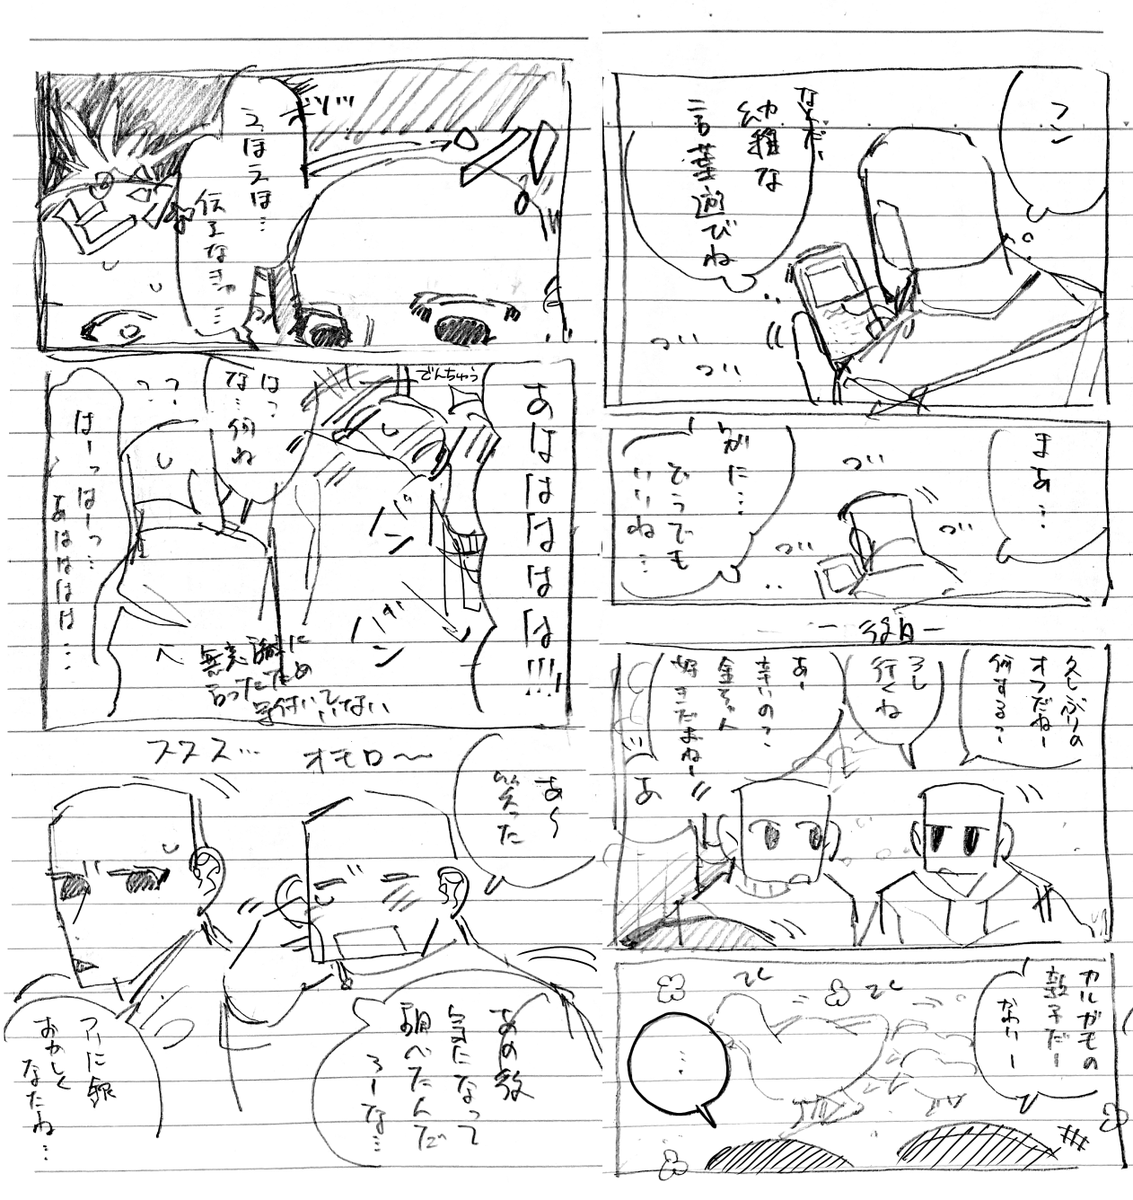 フン
なんだ、
幼稚な
言葉遊びね
まあ…
別に…
どうでも
いいね…
ー後日ー
久しぶりの
オフだねー
何する?
行くね
あー
幸いの?
好きだよねー
あ
カルガモの
親子だー
なわー
…
ボソッ
うほうほ…
伝エなきゃ…
でんちゅう
あはははははは!!!
はっ
な…何ね
??
バン
バン
はーっはーっ…
あはははは…
無意識に
言ったため
気付いていない
スタス…
オモロ〜
あ〜
笑った
あの後
気になって
調べたんだ
ろーな…
アリに銀
おかしく
なたね…